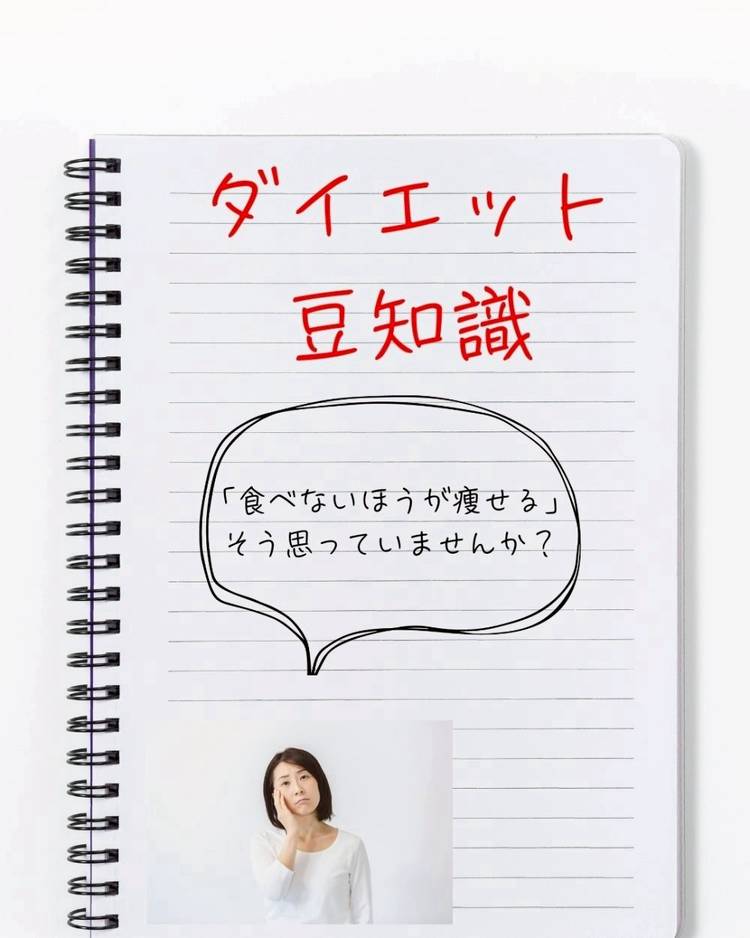 ダイエット
豆知識
「食べないほうが痩せる」
そう思っていませんか？